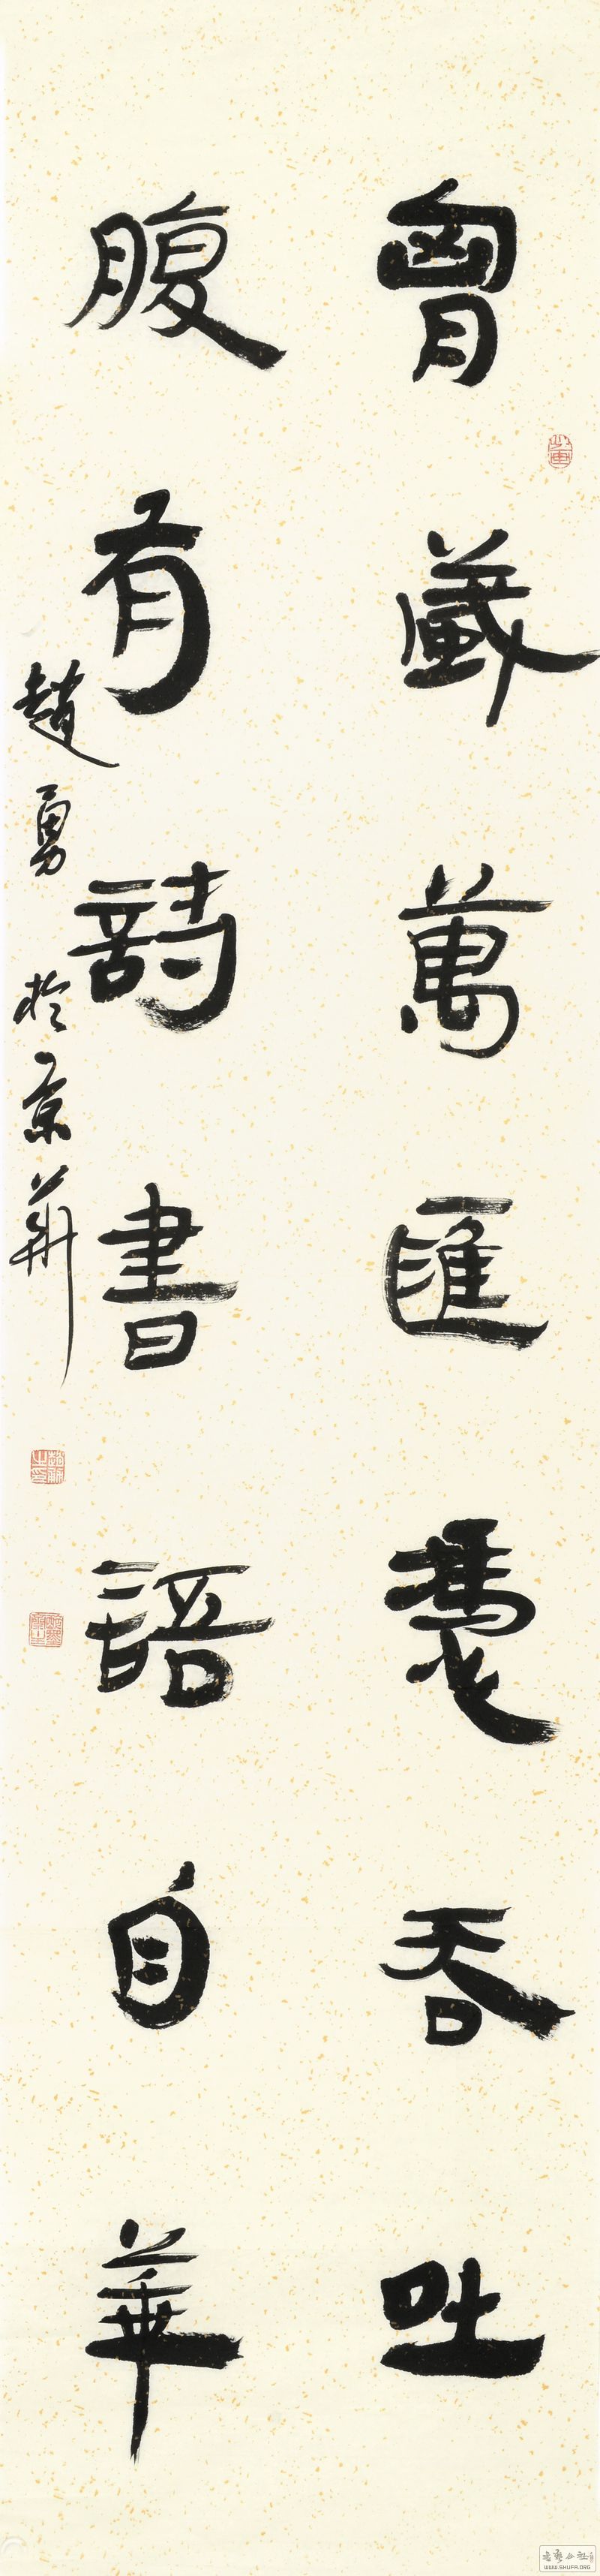 胷藏萬匯憑吞吐
腹有詩書語自華
趙勇於京華
WWW.SHUFA.ORG